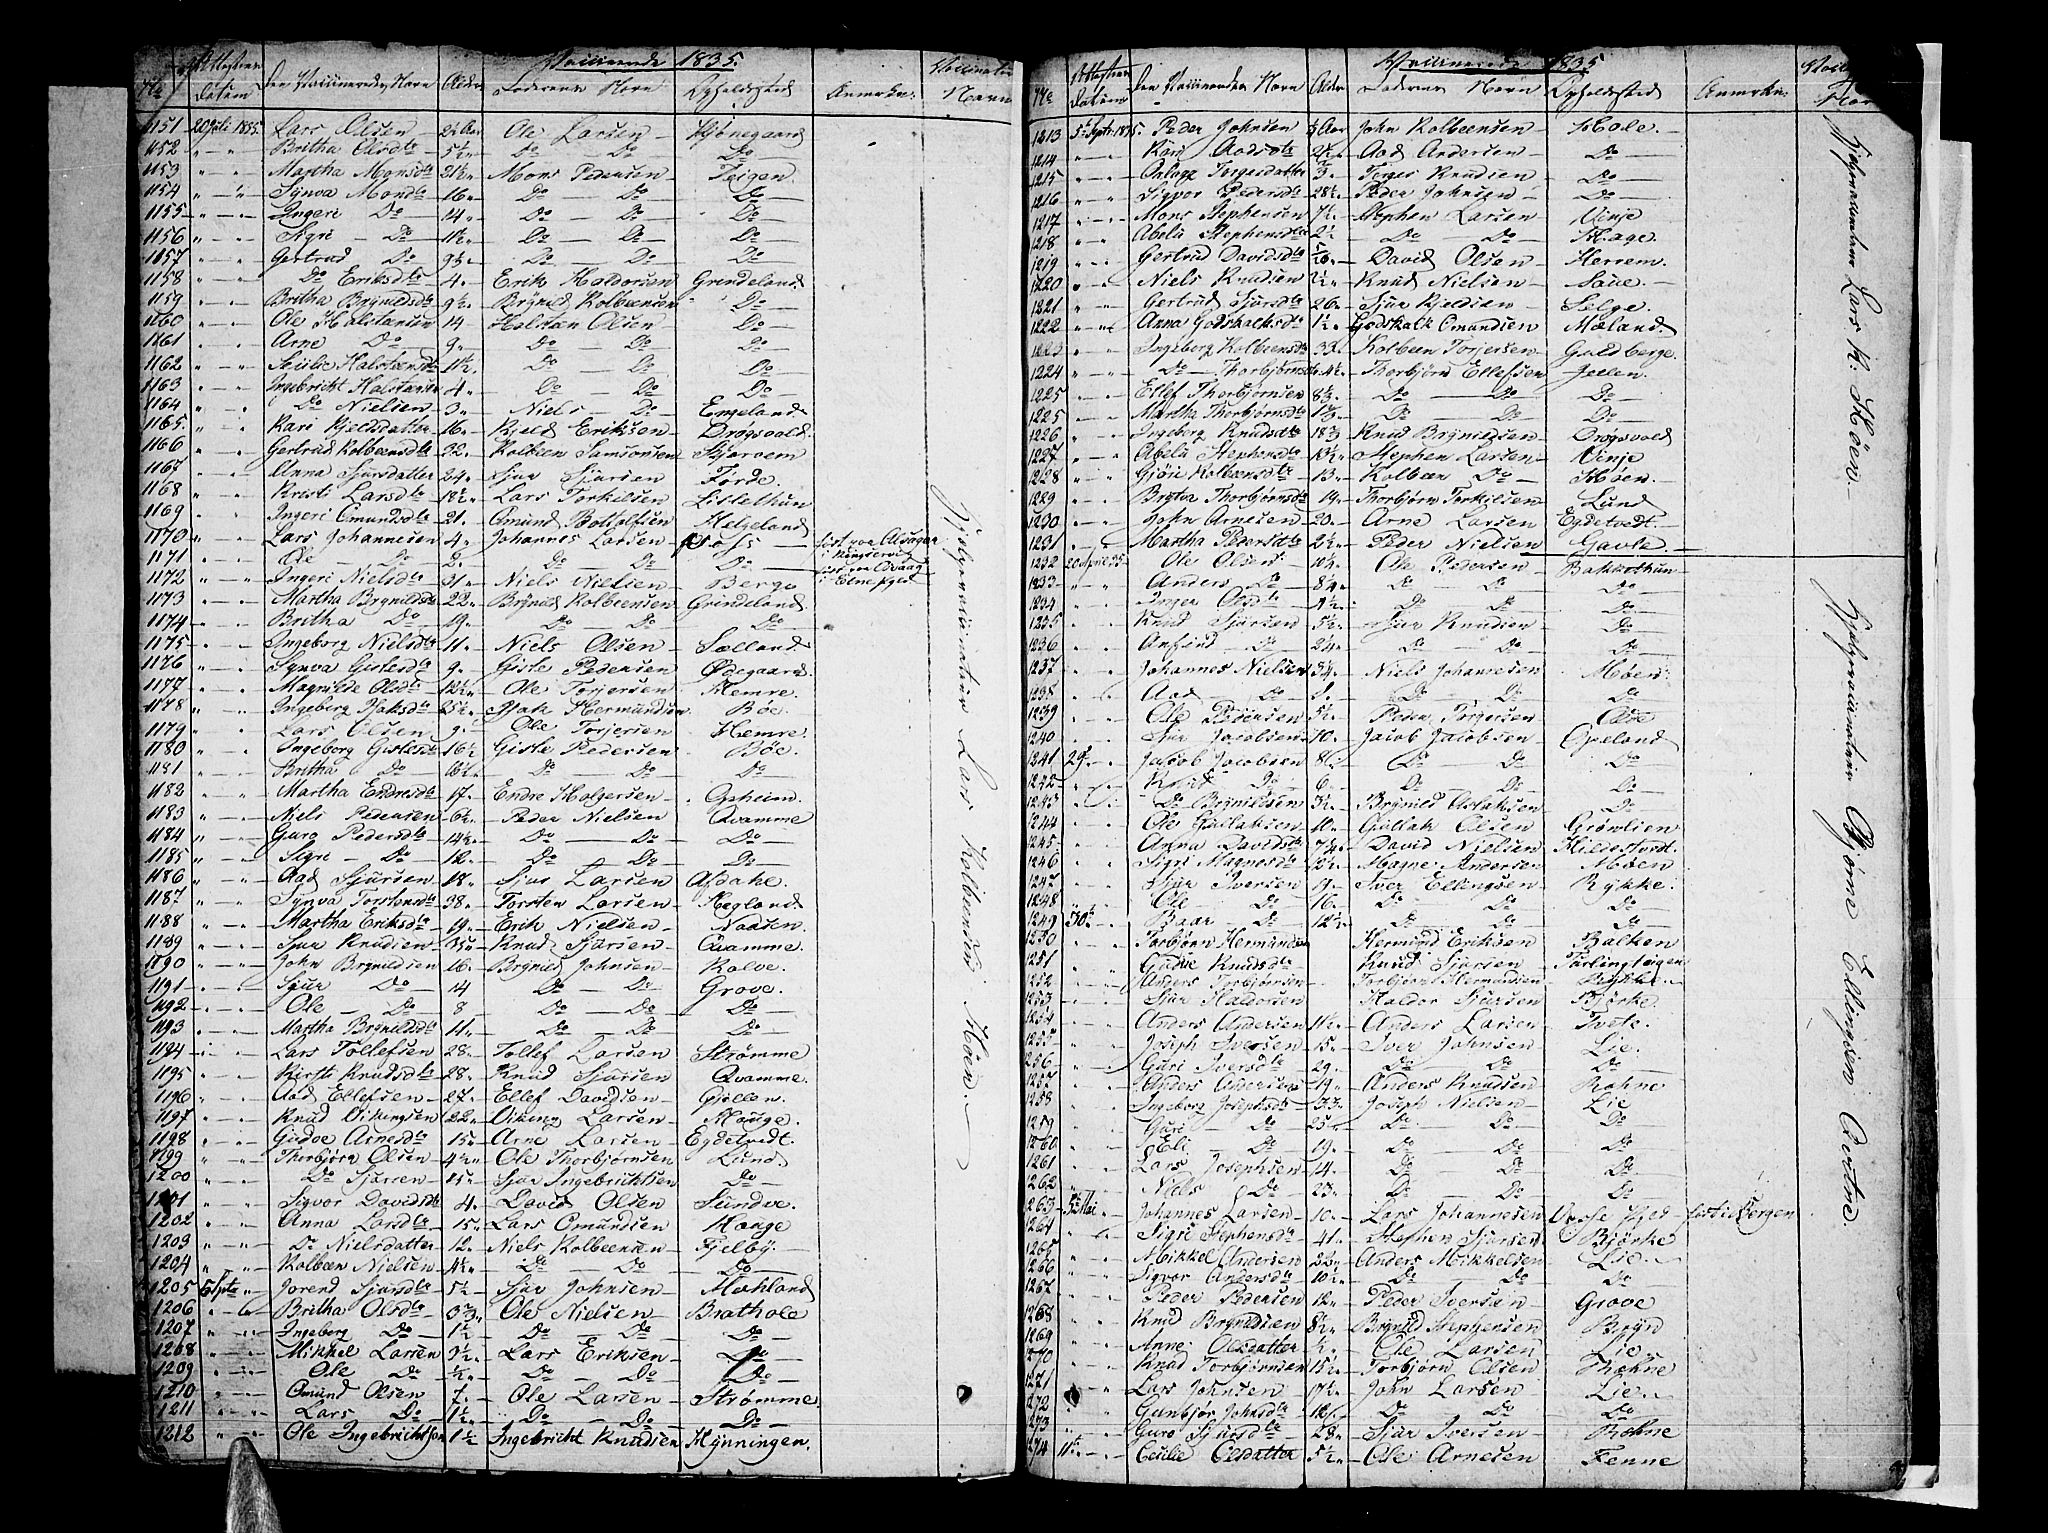 Vaccinerede 1835.
No Attestens Datum den Vaccineredes Navn Alder Faderens Navn Opholdssted Anmærkn: Vaccinateur Navn
1151 20 Juli 1835. Lars Olsen 2½ Aar Ole Larsen Hjönegaard
1152 " " Britha Olsdtr 5½ " Do Do Do
1153 " " Martha Monsdtr 21½ " Mons Pedersen Teigen
1154 " " Synva Monsdtr 16 " Do Do Do
1155 " " Ingeri Do 14 " Do Do Do
1156 " " Sigri Do 11½ " Do Do Do
1157 " " Gertrud Do 9½ " Do Do Do
1158 " " Do Eriksdtr 4 " Erik Haldorsen Grindeland
1159 " " Britha Brÿnildsdtr 9½ " Brÿnild Kolbeensen Do
1160 " " Ole Halstensen 14 Halstan Olsen Do
1161 " " Arne Do 9 " Do Do Do
1162 " " Halsteensdtr 11½ Do Do Do
1163 " " Ingebricht Halstensen 4 " Do Do Do
1164 " " Do Nielsen 3 " Niels Do Engeland
1165 " " Kari Kjeldsdatter 16 " Kjeld Eriksen Drøgsvold
1166 " " Gertrud Kolbeensdtr 32 " Kolbeen Samsonsen Skjærvem
1167 " " Anna Sjursdatter 24 " Sjur Sjursen Førde
1168 " " Kristi Larsdtr 18½ " Lars Torkelsen Listethun
1169 " " Ingeri Omundsdtr 21 " Omund Bottolfsen Helgeland
1170 " " Lars Johannesen 4 " Johannes Larsen
1171 " " Ole Do 2 " Do Do Do
1172 " " Ingeri Nielsdtr 31 " Niels Nielsen Berge
1173 " " Martha Brynildsdtr 22 " Brÿnild Kolbeensen Grindeland
1174 " " Britha Do 19 " Do Do Do
1175 " " Ingeborg Nielsdtr 11 " Niels Olsen Sælland
1176 " " Synva Gislesdtr 9 " Gisle Pedersen Ødegaard
1177 " " Magnilde Olsdtr 12½ " Ole Torjersen Hemre.
1178 " " Ingeborg Isaksdtr 25½ " Isak Hermundsen Bøe.
1179 " " Lars Olsen 9 " Ole Torjersen Hemre.
1180 " " Ingeborg Gislesdtr 16½ Gisle Pedersen Bøe.
1181 " " Britha Do 18½ " Do Do Do
1182 " " Martha Endresdtr 17 " Endre Holgersen Opheim.
1183 " " Niels Pedersen 6½ " Peder Nielsen Qvamme
1184 " " Guro Pedersdtr 14½ " Do Do Do
1185 " " Sigri Do 12 " Do Do Do
1186 " " Aad Sjursen 18 " Sjur Larsen Afdahl.
1187 " " Synva Torstensdtr 38 " Torsten Larsen Hegland
1188 " " Martha Eriksdtr 19 " Erik Nielsen Naasen.
1189 " " Sjur Knudsen 35 " Knud Sjursen Qvamme.
1190 " " John Brynildsen 16 " Brÿnild Johnsen Kolve.
1191 " " Sjur Do 14 Do Do Grove.
1192 " " Ole Do 8 Do Do Do
1193 " " Martha Brÿnildsdtr 11 " Do Do Do
1194 " " Lars Tollefsen 28 " Tollef Larsen Strømme
1195 " " Kirsti Knudsdtr 28 " Knud Sjursen Qvamme.
1196 " " Aad Ellefsen 27 " Ellef Davidsen Gjellen.
1197 " " Knud Vikingsen 22 " Viking Larsen Houge.
1198 " " Gudve Arnesdtr 15 " Arne Larsen Egdetvedt.
1199 " " Thorbjørn Olsen 4½ " Ole Thorbjørnsen Lund
1200 " " Do Sjursen 15 " Sjur Ingebrichtsen Do
1201 " " Sigvor Davidsdtr 4 " David Olsen Sundve.
1202 " " Anna Larsdtr 15 " Lars Omundsen Houge
1203 " " Do Nielsdatter 12 " Niels Kolbeensen Fjelby.
1204 " " Kolbeen Nielsen 4½ " Do Do Do
1205 5 Septr " Jorend Sjursdtr 5½ Sjur Johnsen Hauland
1206 " " Britha Olsdtr 3 " Ole Nielsen Brathole
1207 " " Ingeborg Do 1½ Do Do Do
1208 " " Mikkel Larsen 3½ " Lars Eriksen Do
1209 " " Ole Do ½ " Do Do Do
1210 " " Omund Olsen 7 " Ole Larsen Strømme
1211 " " Lars Do 1½ Do Do Do
1212 " " Ole Ingebrichtsen 1½ Ingebricht Knudsen Hÿnningen.
Hjelpevaccinateur Lars Kolbeensen Høen.
Vaccinerede 1835
No Attestens Datum den Vaccineredes Navn Alder Faderens Navn Opholdssted Anmærkn: Navn
1213 5 Septr 1835. Peder Johnsen Aar John Kolbeensen Hole.
1214 " " Kari Aadsdtr 2½ " Aad Andersen Do
1215 " " Torgesdatter 3 " Torges Knudsen Do
1216 " " Sigvor Pedersdtr 28½ Peder Johnsen Do
1217 " " Mons Stephensen 7½ " Stephen Larsen Vinje
1218 " " Abelu Stephensdtr 2½ Do Do Hage.
1219 " " Gertrud Davidsdtr David Olsen Herrem.
1220 " " Niels Knudsen 2½ " Knud Nielsen Saue.
1221 " " Gertrud Sjursdtr 26 " Sjur Kjeldsen Selge.
1222 " " Anna Godskalksdtr 1½ " Godskalk Omundsen Mæland
1223 " " Ingeborg Kolbeensdtr 33 " Kolbeen Torjersen Guldberge.
1224 " " Do Thorbjørnsdtr 4½ " Thorbjørn Ellefsen Jellen.
1225 " " Ellef Thorbjørnsen 8½ " Do Do Do
1225 " " Martha Thorbjørnsdtr Do Do Do
1226 " " Ingeborg Knudsdtr Knud Brynildsen Drøgsvold
1227 " " Abelu Stephensdtr 13½ Stephen Larsen Vinje
1228 " " Gjøri Kolbeensdtr 13 " Kolbeen Do Høen.
1229 " " Thorbjørnsdtr 14 " Thorbjørn Torkilsen Lund
1230 " " John Arnesen 20 " Arne Larsen Egdetvedt.
1231 " " Martha Pedersdtr 2½ " Peder Nielsen Gavle.
1232 20 April 35 Ole Olsen 10½ Ole Pedersen Bakkethun
1233 " " Anders Do 8¼ Do Do Do
1234 " " Inger Olsdtr 4½ Do Do Do
1235 " " Knud Sjursen 5½ Sjur Knudsen Do
1236 " " Anfind Do 2¼ Do Do Do
1237 " " Johannes Nielsen 3¼ Niels Johannesen Møen
1238 " " Aad Do Do Do Do
1239 " " Ole Pedersen 5½ Peder Torgersen
1240 " " Sjur Jacobsen 10 " Jacob Jacobsen Opeland
1241 29de " Jacob Jacobsen 8 " Do Do Do
1242 " " Knud Do 6 " Do Do Do
1243 " " Do Brÿnildsen 3½ " Brÿnild Aslaksen Do
1244 " " Ole Gullaksen 10 " Gullak Olsen Grövlien
1245 " " Anna Davidsdtr David Nielsen Hildestvedt.
1246 " " Sigri Magnesdtr 12½ Magne Andersen Møen
1247 " " Sjur Iversen 19 " Iver Ellingsen Rÿkke.
1248 " " Ole Do 16 " Do Do Do
1249 30te " Baar Do 12½ Do Do Do
1250 " " Torbjørn Hermundsen Hermund Eriksen Balken
1251 " " Gudve Knudsdtr Knud Sjursen
1252 " " Anders Torbjørnsen Torbjørn Hermundsen
1253 " " Sjur Haldorsen Haldor Sjursen Bjørke.
1254 " " Anders Andersen 11½ Anders Larsen Tvete.
1255 " " Joseph Iversen 15 " Iver Johnsen Lie.
1256 " " Guri Iversdtr 29 " Do Do Do
1257 " " Anders Andersen 19 " Anders Knudsen Røhne
1258 " " Ingeborg Josephsdtr 33 " Joseph Nielsen Lie
1259 " " Guri Do 25 " Do Do Do
1260 " " Eli Do 19 " Do Do Do
1261 " " Lars Josephsen 14 " Do Do Do
1262 " " Niels Do 23 " Do Do Do
1263 Mai " Johannes Larsen 10 " Lars Johannesen født i Bergen
1264 " " Sigri Stephensdtr 41 " Stephen Sjursen Bjørke
1265 " " Mikkel Andersen 22 " Anders Mikkelsen Lie.
1266 " " Sigvor Andersdtr 10½ " Do Do Do
1267 " " Peder Pedersen 12 " Peder Iversen Grove
1268 " " Knud Brÿnildsen 8½ " Brÿnild Stephensen Brÿn
1269 " " Anne Olsdatter ½ " Ole Larsen Lie
1270 " " Knud Torbjørnsen 15½ Torbjørn Olsen Røhne
1271 " " Lars Johnsen 17½ John Larsen Lie.
1272 " " Gunbjør Johnsdtr 12 " Do Do Do
1273 " " Guro Sjursdtr 28 " Sjur Iversen Røhne
1274 11te " Cecilie Olsdatter 5½ Ole Arnesen Fenne
Hjelpevaccinateur Lars K: Høen.
Hjelpevaccinateur Bjørne Ellingsen